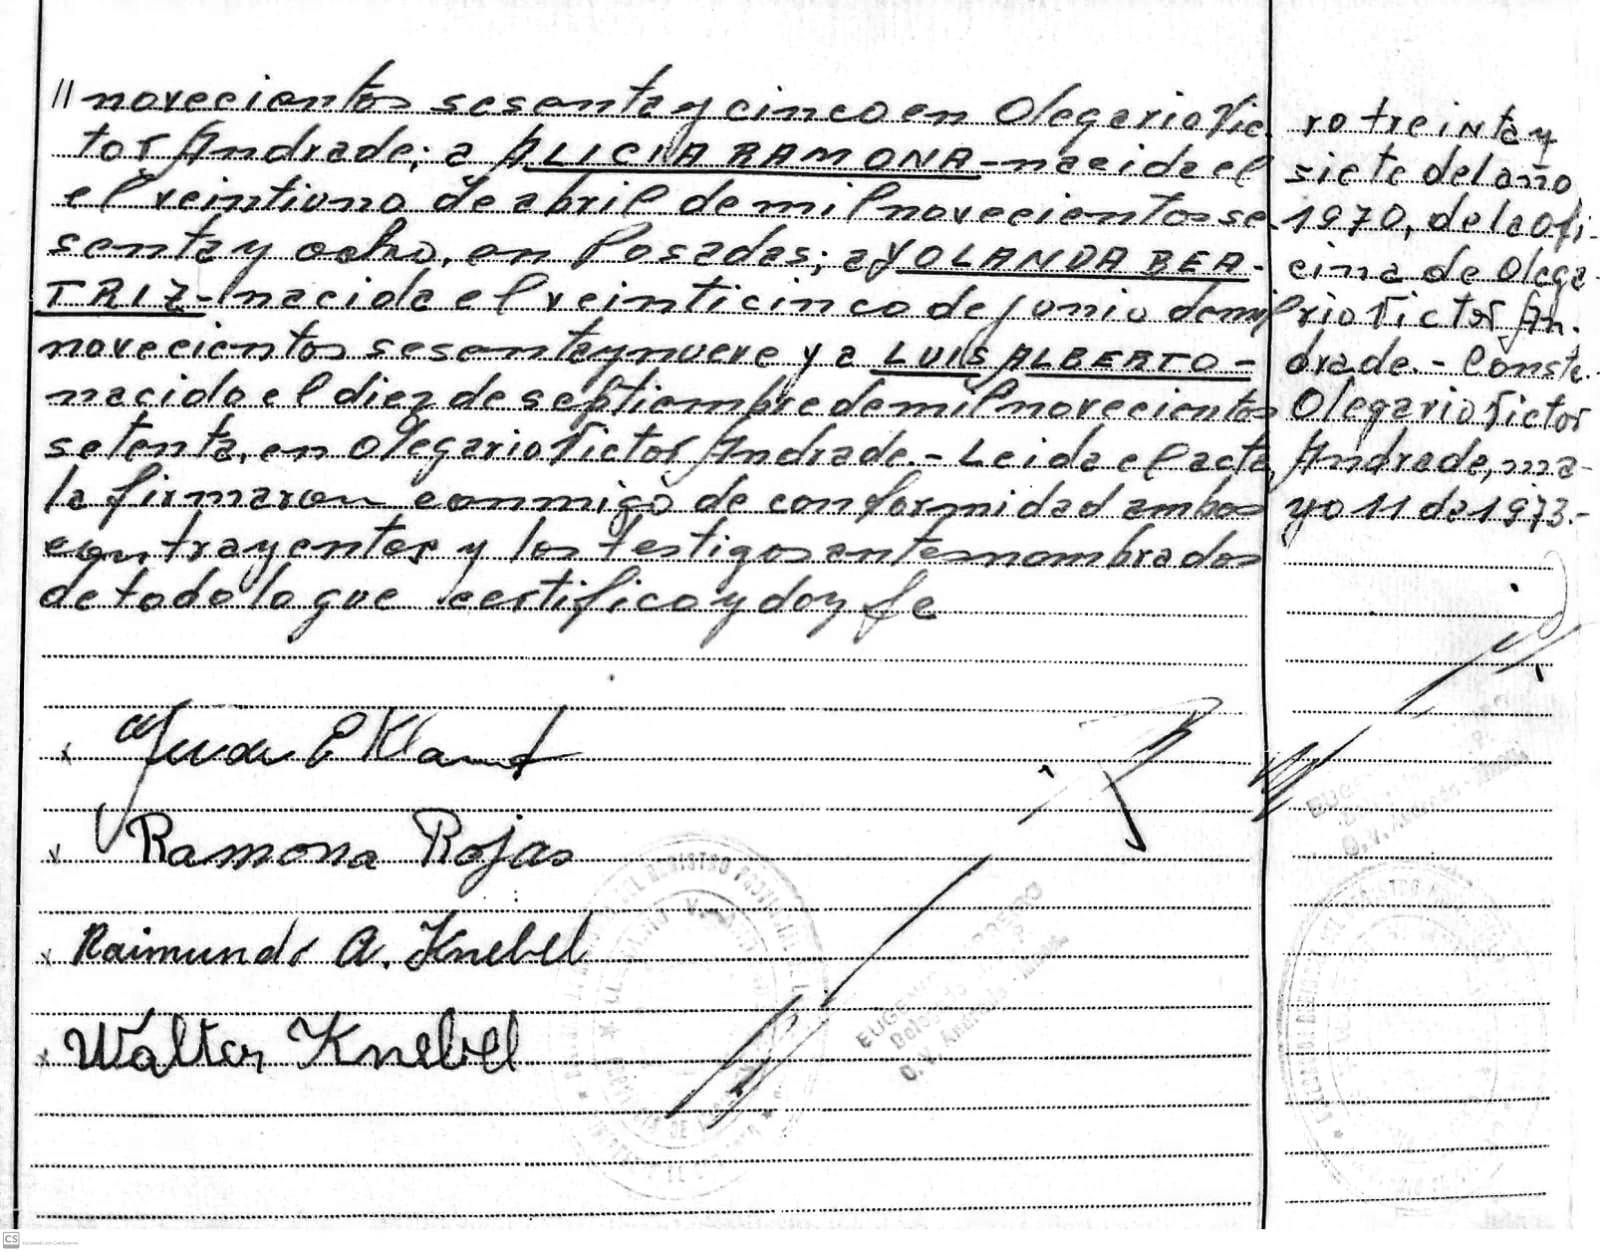 // novecientos sesenta y cinco en Olegario Vic-
tor Andrade; a ALICIA RAMONA - nacida el
el veintiuno de abril de mil novecientos se-
senta y ocho, en Posadas; a YOLANDA BEA-
TRIZ - nacida el veinticinco de junio de mil
novecientos sesenta y nueve y a LUIS ALBERTO -
nacido el diez de septiembre de mil novecientos
setenta, en Olegario Victor Andrade. - Leida el acta,
la firmaron conmigo de conformidad ambos
contrayentes y los testigos antes nombrados
de todo lo que certifico y doy fe
ro treinta y
siete del año
1970, de la Ofi-
cina de Olega-
rio Victor An-
drade. - Conste.-
Olegario Victor
Andrade, ma-
yo 11 de 1973.-
x
Ramona Rojas
x Raimundo A. Knebel
x Walter Knebel
DEL REGISTRO PROVINCIAL
EUGENIO
O. V. Andrade - Mnes.
O. V. Andrade - Mnes.
CS